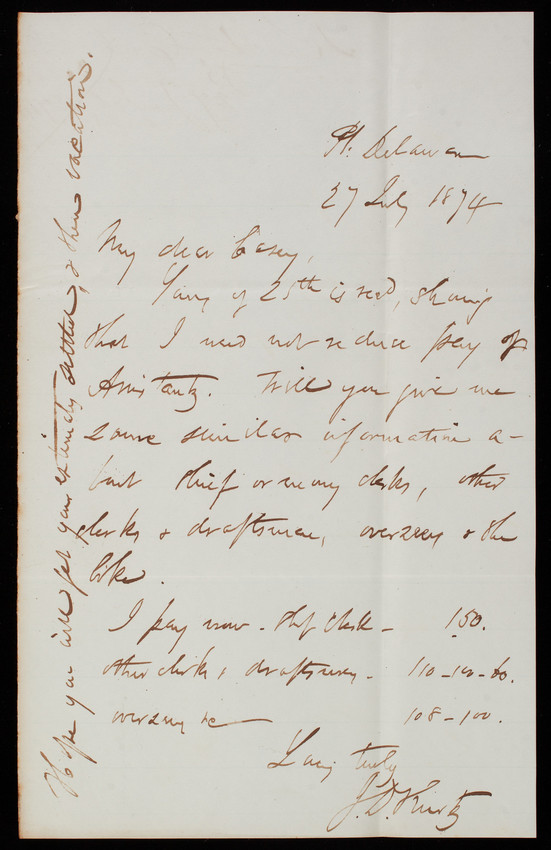 Ft. Delaware
27 July 1874
My dear Casey,
Yours of 25th is recd, showing
that I need not reduce pay of
Assistants. Will you give me
some similar information a-
bout chief or money clerks, other
clerks & draftsmen, overseers & the
like.
I pay now - chf clerk - 150.
other clerks & draftsmen - 110-100-80.
overseers &c 108-100.
Yours truly
J. D. Kurtz
Hope you will get your estimates settled, & then vacation.